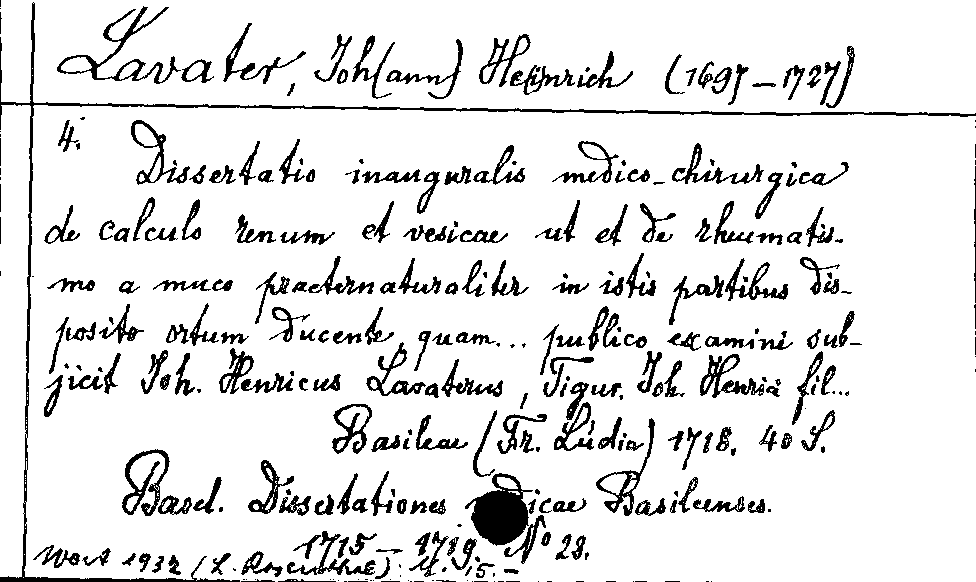 Lavater, Joh(ann) Heinrich (1697–1727)
4. Dissertatio inauguralis medico-chirurgica
de calculo renum et vesicae ut et de rheumatis-
mo a muco praeternaturaliter in istis partibus dis-
posito ortum ducente, quam... publico examini sub-
jicit Joh. Henricus Lavaterus, Tigur. Joh. Henrici fil...
Basileae (Fr. Lüdin) 1718. 40 S.
Basel. Dissertationes medicae Basileenses.
1715 – 1719. No 28.
1932 (L. Rosenthal): M. 15.–